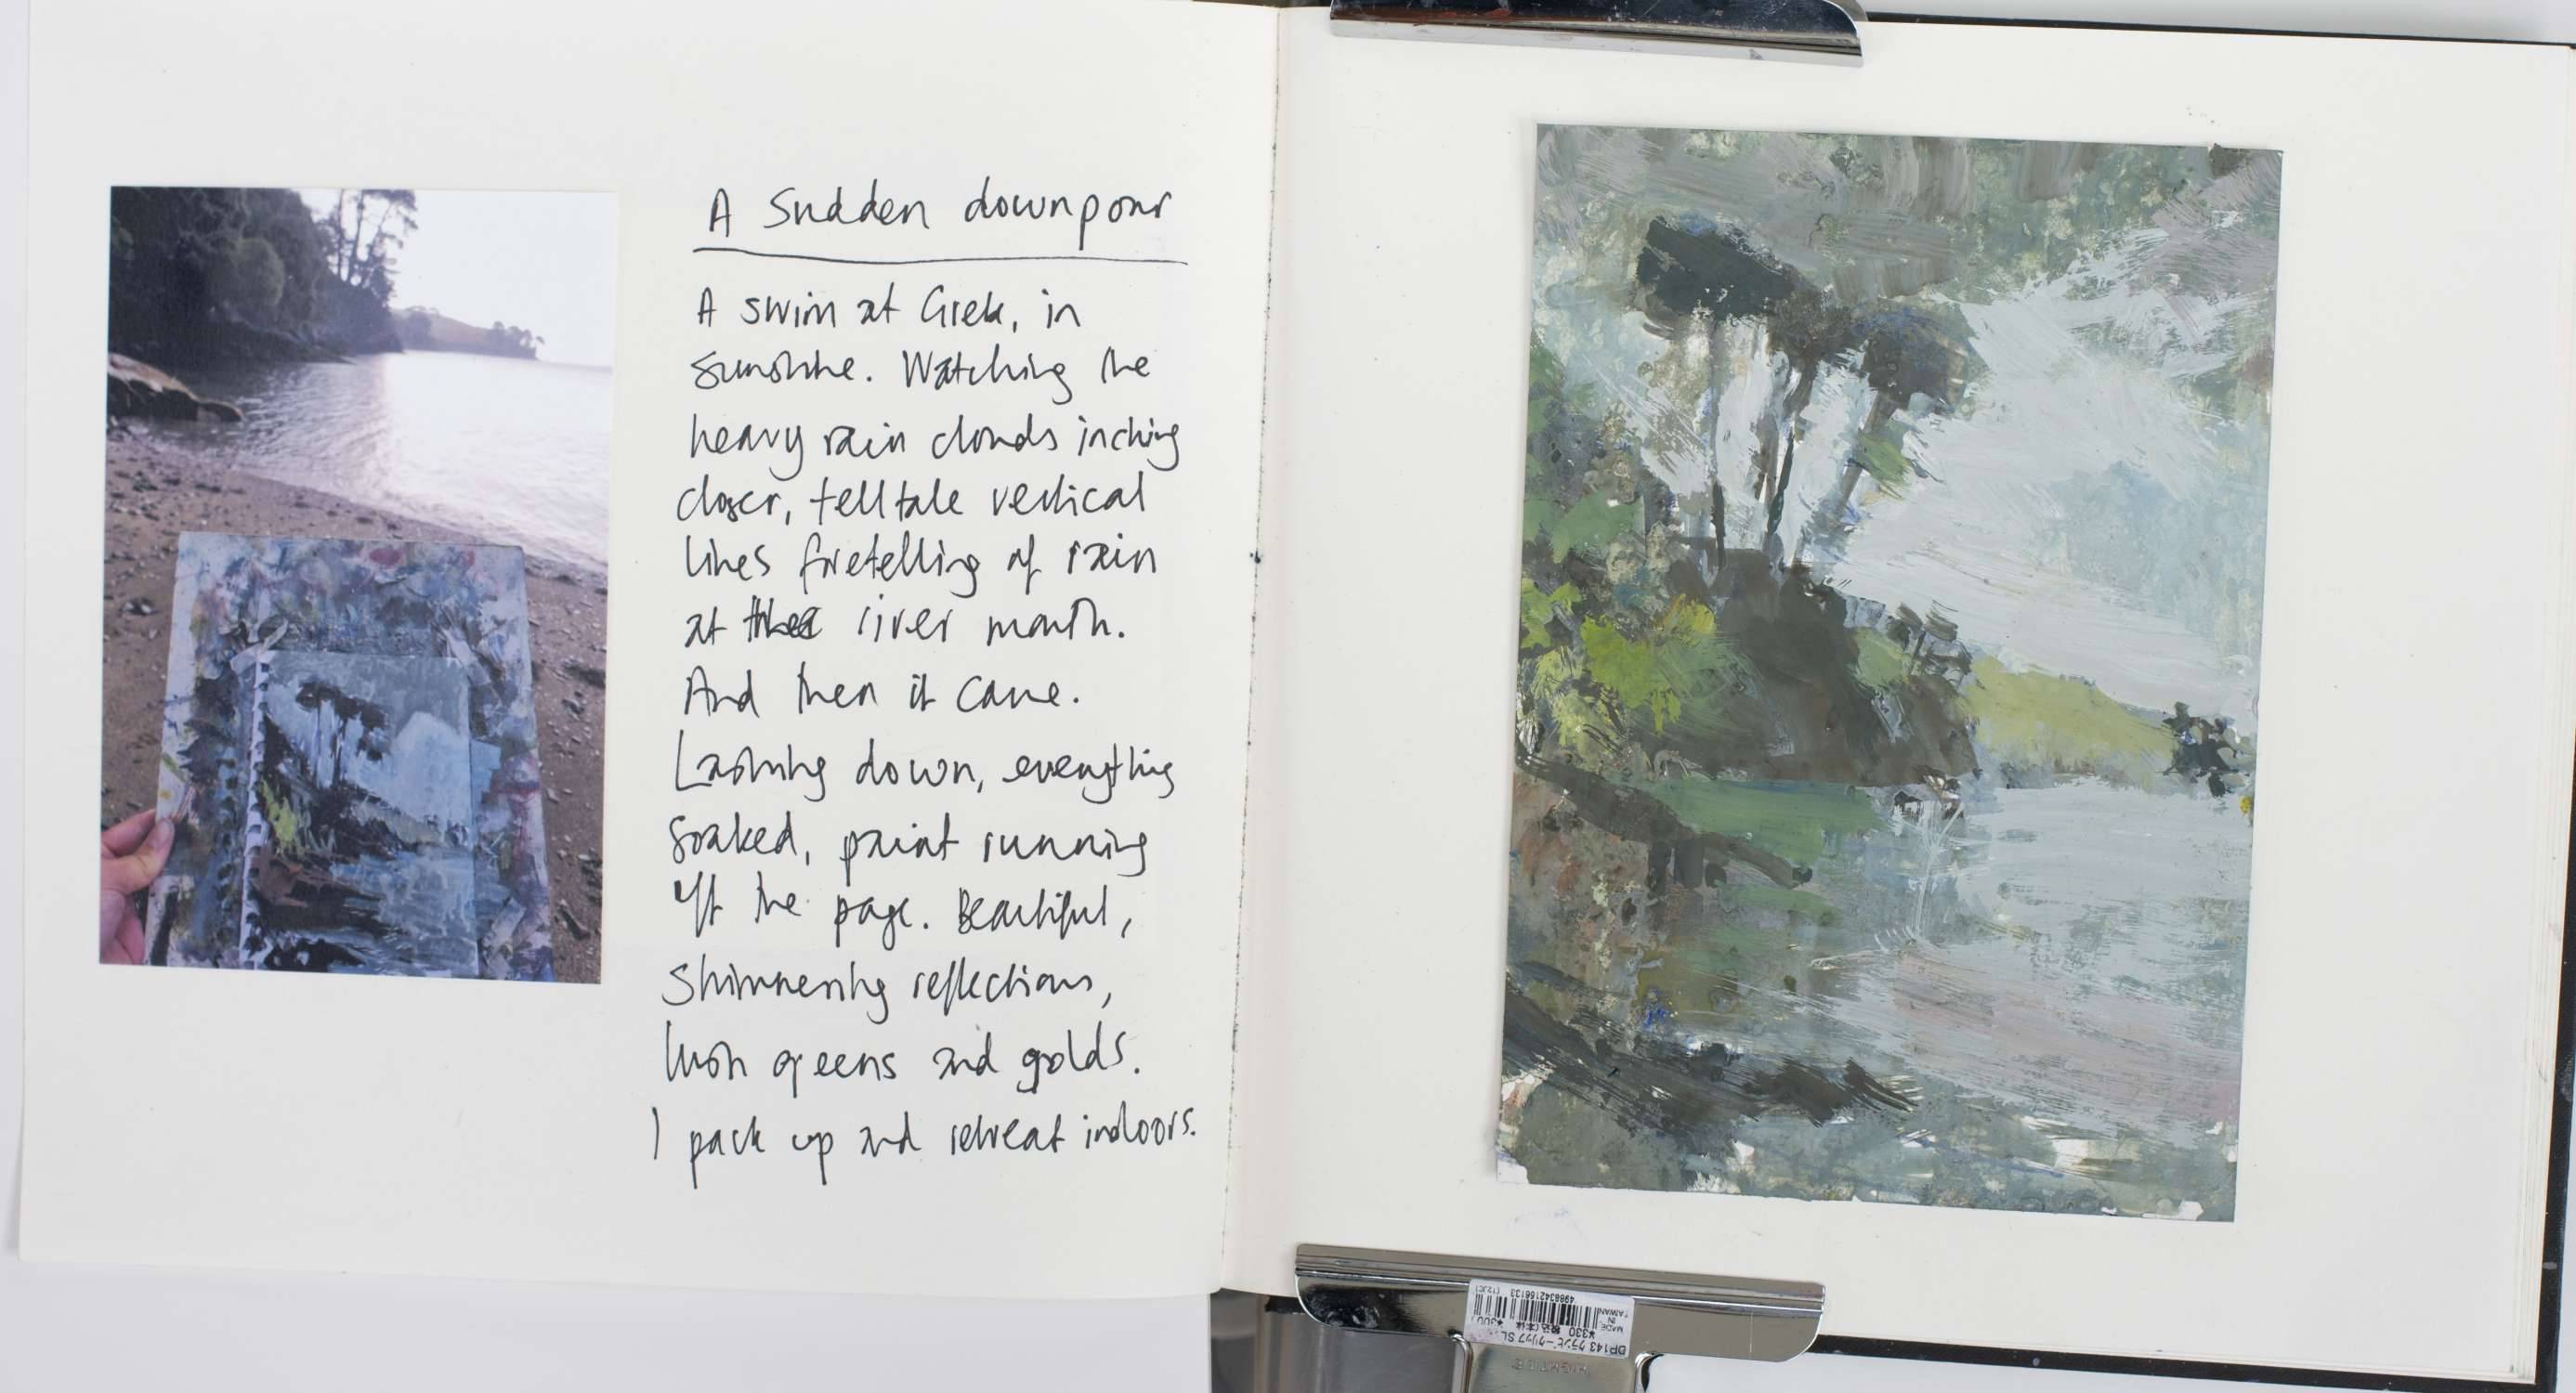 A Sudden downpour
A swim at Greta, in
sunshine. Watching the
heavy rain clouds inching
closer, telltale vertical
lines foretelling of rain
at the river mouth.
And then it came.
Lashing down, everything
soaked, paint running
off the page. Beautiful,
shimmering reflections,
lush greens and golds.
I pack up and retreat indoors.
DP143 クランピークリップ SL
¥330 税込(本体 ¥300)
MADE
IN
TAIWAN
4968342156133